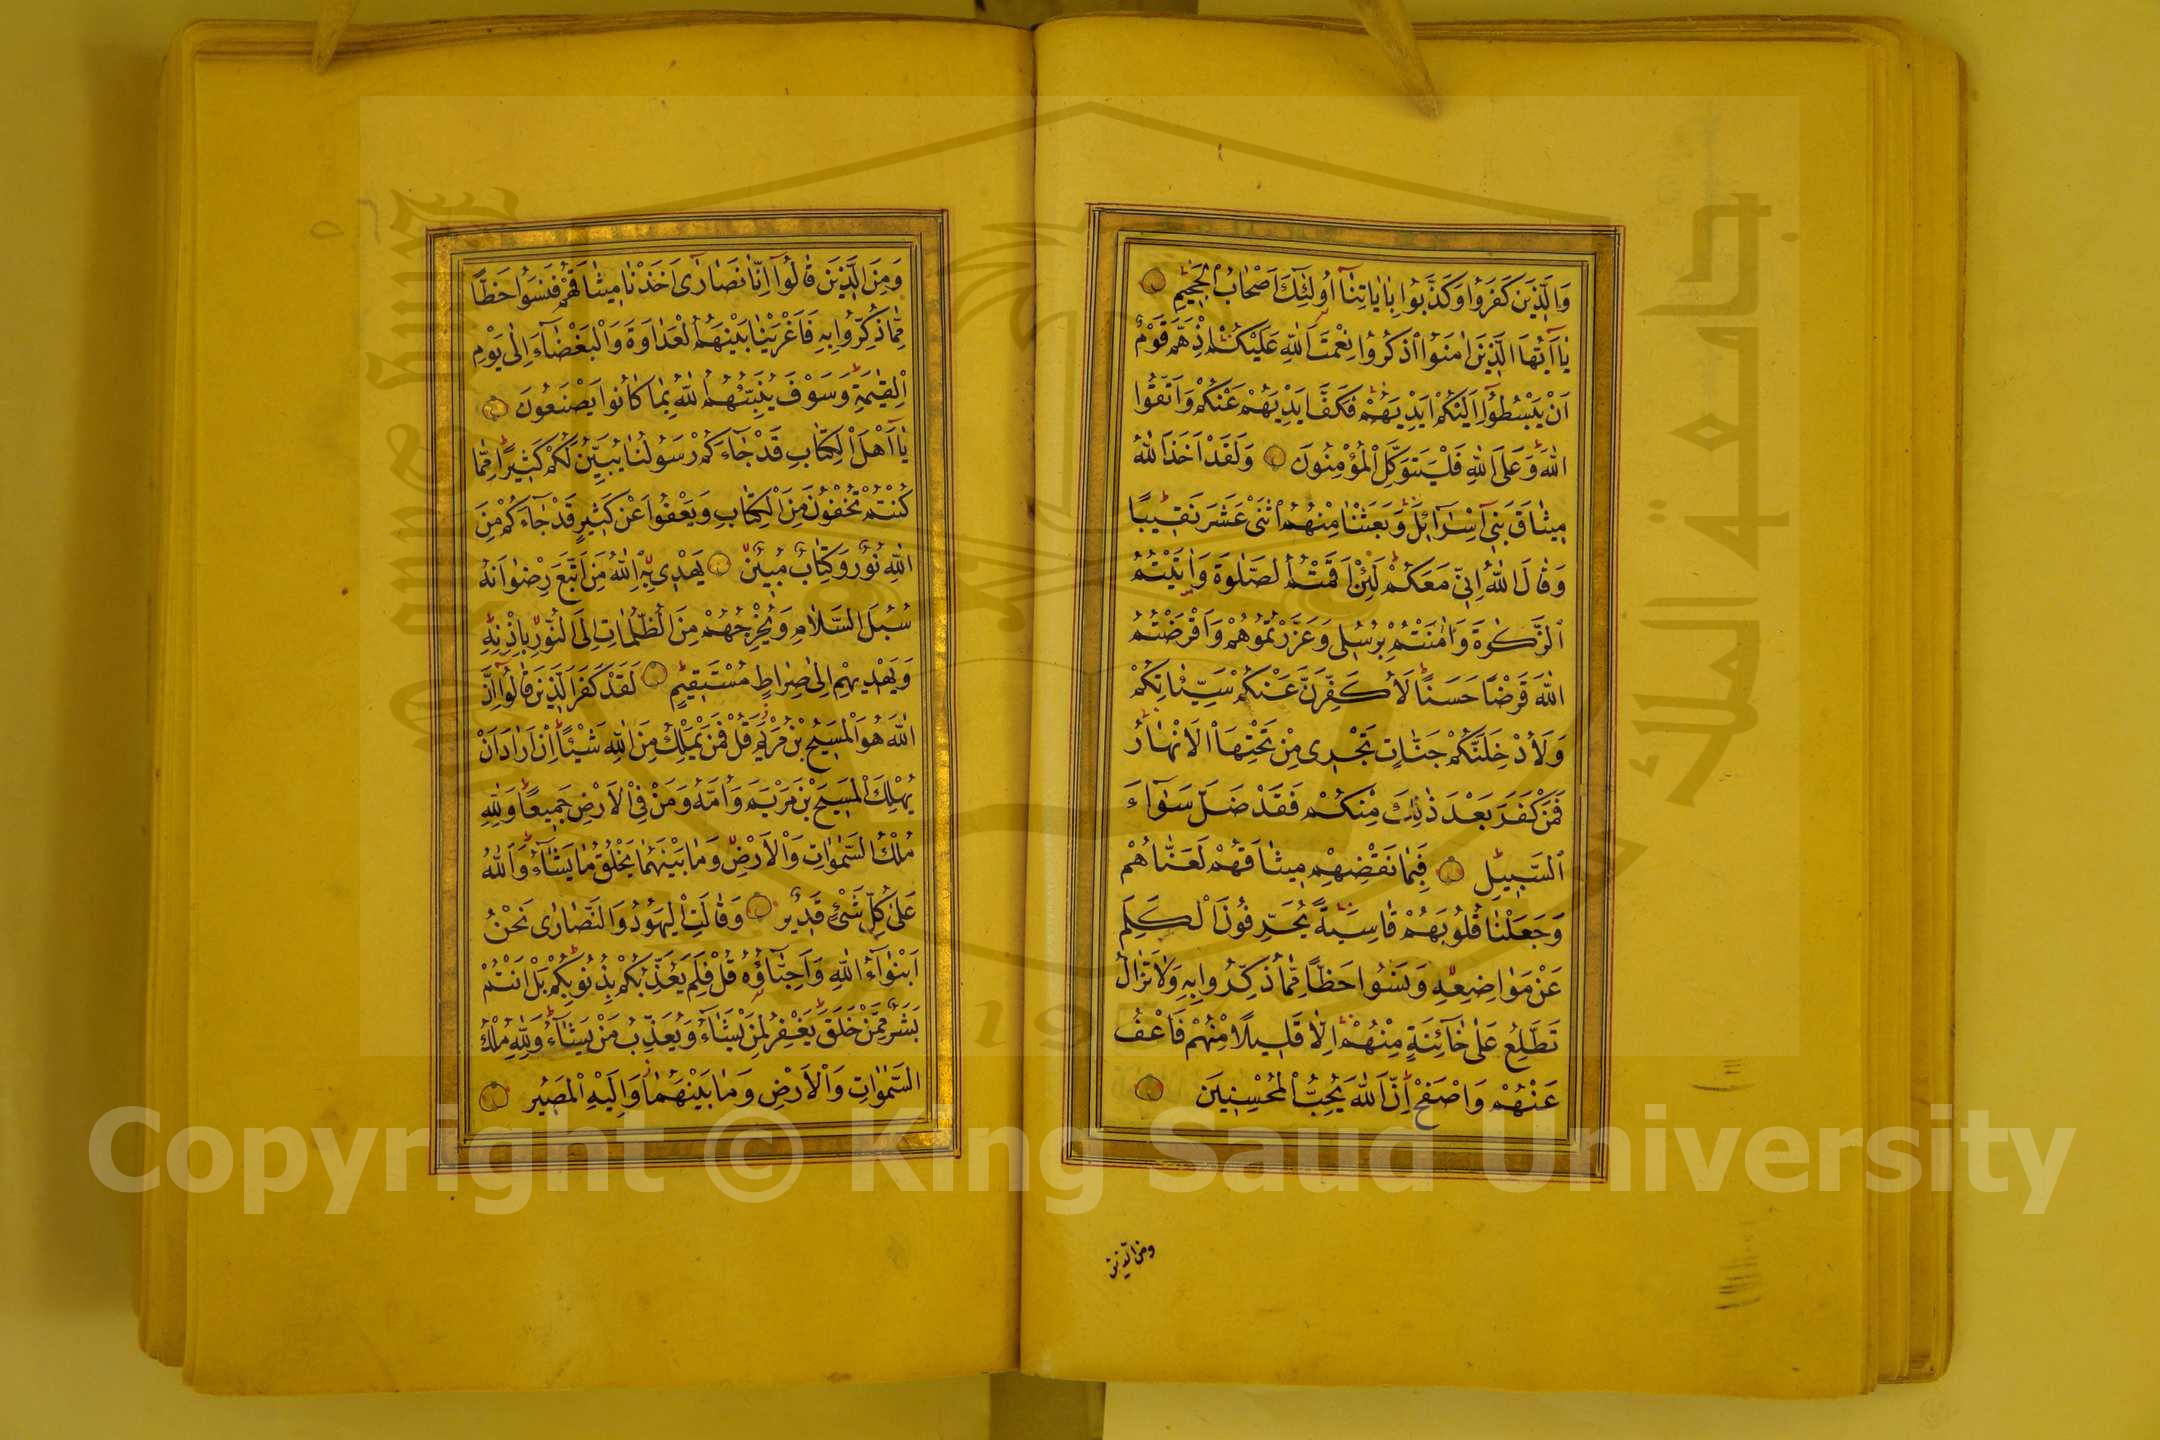 وَالَّذِينَ كَفَرُوا وَكَذَّبُوا بِاٰيَاتِنَٓا اُولٰٓئِكَ اَصْحَابُ الْجَحِيمِ
يَٓا اَيُّهَا الَّذِينَ اٰمَنُوا اذْكُرُوا نِعْمَتَ اللّٰهِ عَلَيْكُمْ اِذْ هَمَّ قَوْمٌ
اَنْ يَبْسُطُٓوا اِلَيْكُمْ اَيْدِيَهُمْ فَكَفَّ اَيْدِيَهُمْ عَنْكُمْ وَاتَّقُوا
اللّٰهَ وَعَلَى اللّٰهِ فَلْيَتَوَكَّلِ الْمُؤْمِنُونَ وَلَقَدْ اَخَذَ اللّٰهُ
مِيثَاقَ بَنِٓي اِسْرَٓائِلَ وَبَعَثْنَا مِنْهُمُ اثْنَيْ عَشَرَ نَقِيبًا
وَقَالَ اللّٰهُ اِنِّي مَعَكُمْ لَئِنْ اَقَمْتُمُ الصَّلٰوةَ وَاٰتَيْتُمُ
الزَّكٰوةَ وَاٰمَنْتُمْ بِرُسُلِي وَعَزَّرْتُمُوهُمْ وَاَقْرَضْتُمُ
اللّٰهَ قَرْضًا حَسَنًا لَاُكَفِّرَنَّ عَنْكُمْ سَيِّئَاتِكُمْ
وَلَاُدْخِلَنَّكُمْ جَنَّاتٍ تَجْرِي مِنْ تَحْتِهَا الْاَنْهَارُ
فَمَنْ كَفَرَ بَعْدَ ذٰلِكَ مِنْكُمْ فَقَدْ ضَلَّ سَوَٓاءَ
السَّبِيلِ فَبِمَا نَقْضِهِمْ مِيثَاقَهُمْ لَعَنَّاهُمْ
وَجَعَلْنَا قُلُوبَهُمْ قَاسِيَةً يُحَرِّفُونَ الْكَلِمَ
عَنْ مَوَاضِعِهِ وَنَسُوا حَظًّا مِمَّا ذُكِّرُوا بِهِ وَلَا تَزَالُ
تَطَّلِعُ عَلٰى خَٓائِنَةٍ مِنْهُمْ اِلَّا قَلِيلًا مِنْهُمْ فَاعْفُ
عَنْهُمْ وَاصْفَحْ اِنَّ اللّٰهَ يُحِبُّ الْمُحْسِنِينَ
ومن الذين
وَمِنَ الَّذِينَ قَالُٓوا اِنَّا نَصَارٰٓى اَخَذْنَا مِيثَاقَهُمْ فَنَسُوا حَظًّا
مِمَّا ذُكِّرُوا بِهِ فَاَغْرَيْنَا بَيْنَهُمُ الْعَدَاوَةَ وَالْبَغْضَٓاءَ اِلٰى يَوْمِ
الْقِيٰمَةِ وَسَوْفَ يُنَبِّئُهُمُ اللّٰهُ بِمَا كَانُوا يَصْنَعُونَ
يَٓا اَهْلَ الْكِتَابِ قَدْ جَٓاءَكُمْ رَسُولُنَا يُبَيِّنُ لَكُمْ كَثِيرًا مِمَّا
كُنْتُمْ تُخْفُونَ مِنَ الْكِتَابِ وَيَعْفُوا عَنْ كَثِيرٍ قَدْ جَٓاءَكُمْ مِنَ
اللّٰهِ نُورٌ وَكِتَابٌ مُبِينٌ يَهْدِي بِهِ اللّٰهُ مَنِ اتَّبَعَ رِضْوَانَهُ
سُبُلَ السَّلَامِ وَيُخْرِجُهُمْ مِنَ الظُّلُمَاتِ اِلَى النُّورِ بِاِذْنِهِ
وَيَهْدِيهِمْ اِلٰى صِرَاطٍ مُسْتَقِيمٍ لَقَدْ كَفَرَ الَّذِينَ قَالُٓوا اِنَّ
اللّٰهَ هُوَ الْمَسِيحُ بْنُ مَرْيَمَ قُلْ فَمَنْ يَمْلِكُ مِنَ اللّٰهِ شَيْئًا اِنْ اَرَادَ اَنْ
يُهْلِكَ الْمَسِيحَ بْنَ مَرْيَمَ وَاُمَّهُ وَمَنْ فِي الْاَرْضِ جَمِيعًا وَلِلّٰهِ
مُلْكُ السَّمٰوَاتِ وَالْاَرْضِ وَمَا بَيْنَهُمَا يَخْلُقُ مَا يَشَٓاءُ وَاللّٰهُ
عَلٰى كُلِّ شَيْءٍ قَدِيرٌ وَقَالَتِ الْيَهُودُ وَالنَّصَارٰى نَحْنُ
اَبْنَٓاءُ اللّٰهِ وَاَحِبَّٓاؤُهُ قُلْ فَلِمَ يُعَذِّبُكُمْ بِذُنُوبِكُمْ بَلْ اَنْتُمْ
بَشَرٌ مِمَّنْ خَلَقَ يَغْفِرُ لِمَنْ يَشَٓاءُ وَيُعَذِّبُ مَنْ يَشَٓاءُ وَلِلّٰهِ مُلْكُ
السَّمٰوَاتِ وَالْاَرْضِ وَمَا بَيْنَهُمَا وَاِلَيْهِ الْمَصِيرُ
Copyright © King Saud University